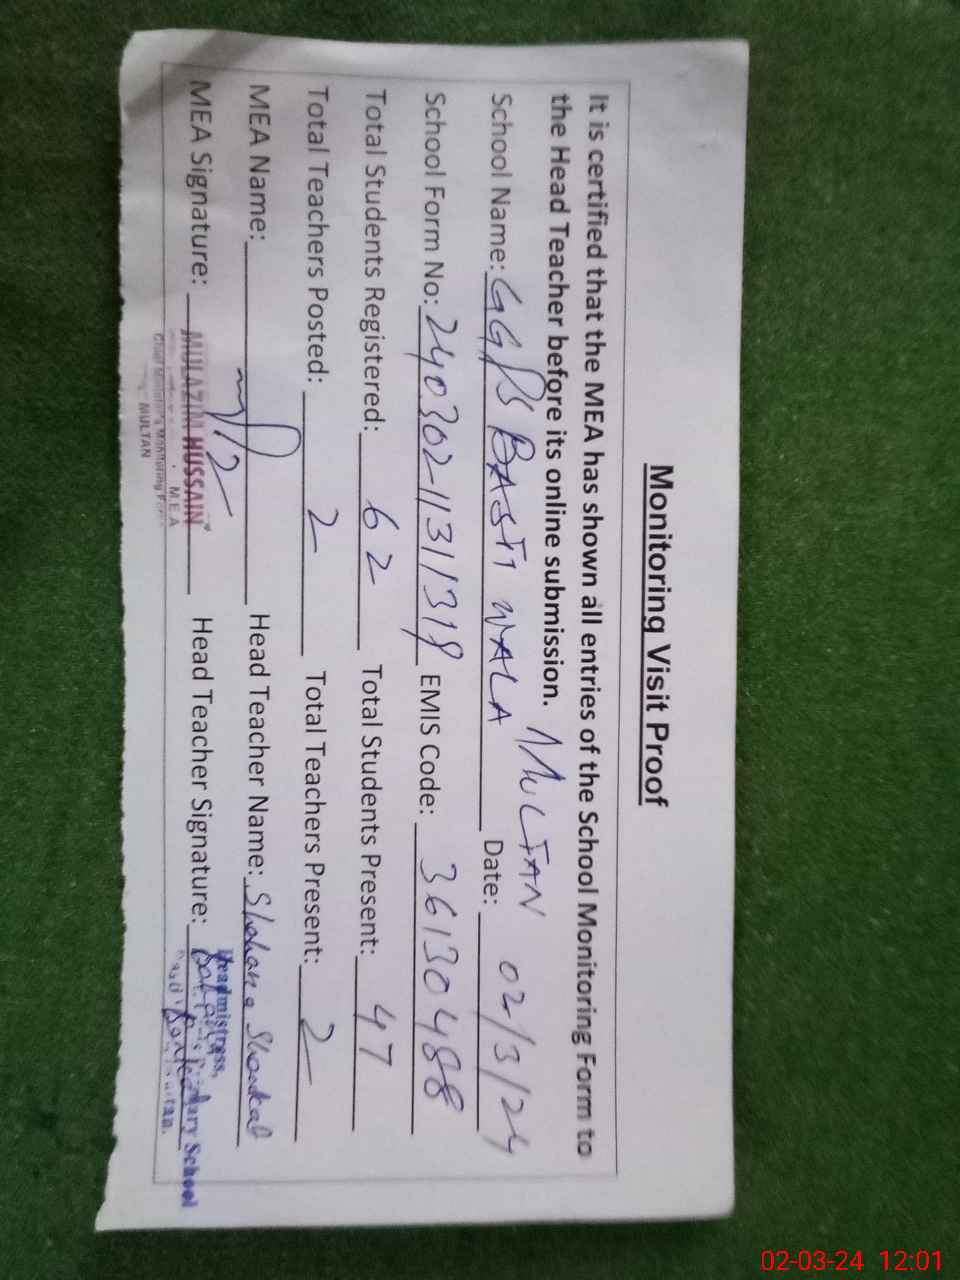 Monitoring Visit Proof
It is certified that the MEA has shown all entries of the School Monitoring Form to
the Head Teacher before its online submission.
School Name: GGPS BASTI WALA MULTAN Date: 02/3/24
School Form No: 240302-11311318 EMIS Code: 36130488
Total Students Registered: 62 Total Students Present: 47
Total Teachers Posted: 2 Total Teachers Present: 2
MEA Name: Head Teacher Name: Shahana Shaukat
MEA Signature: Head Teacher Signature:
MULAZIM HUSSAIN
M.E.A
Chief Minister's Monitoring Force
MULTAN
Headmistress,
Primary School
02-03-24 12:01